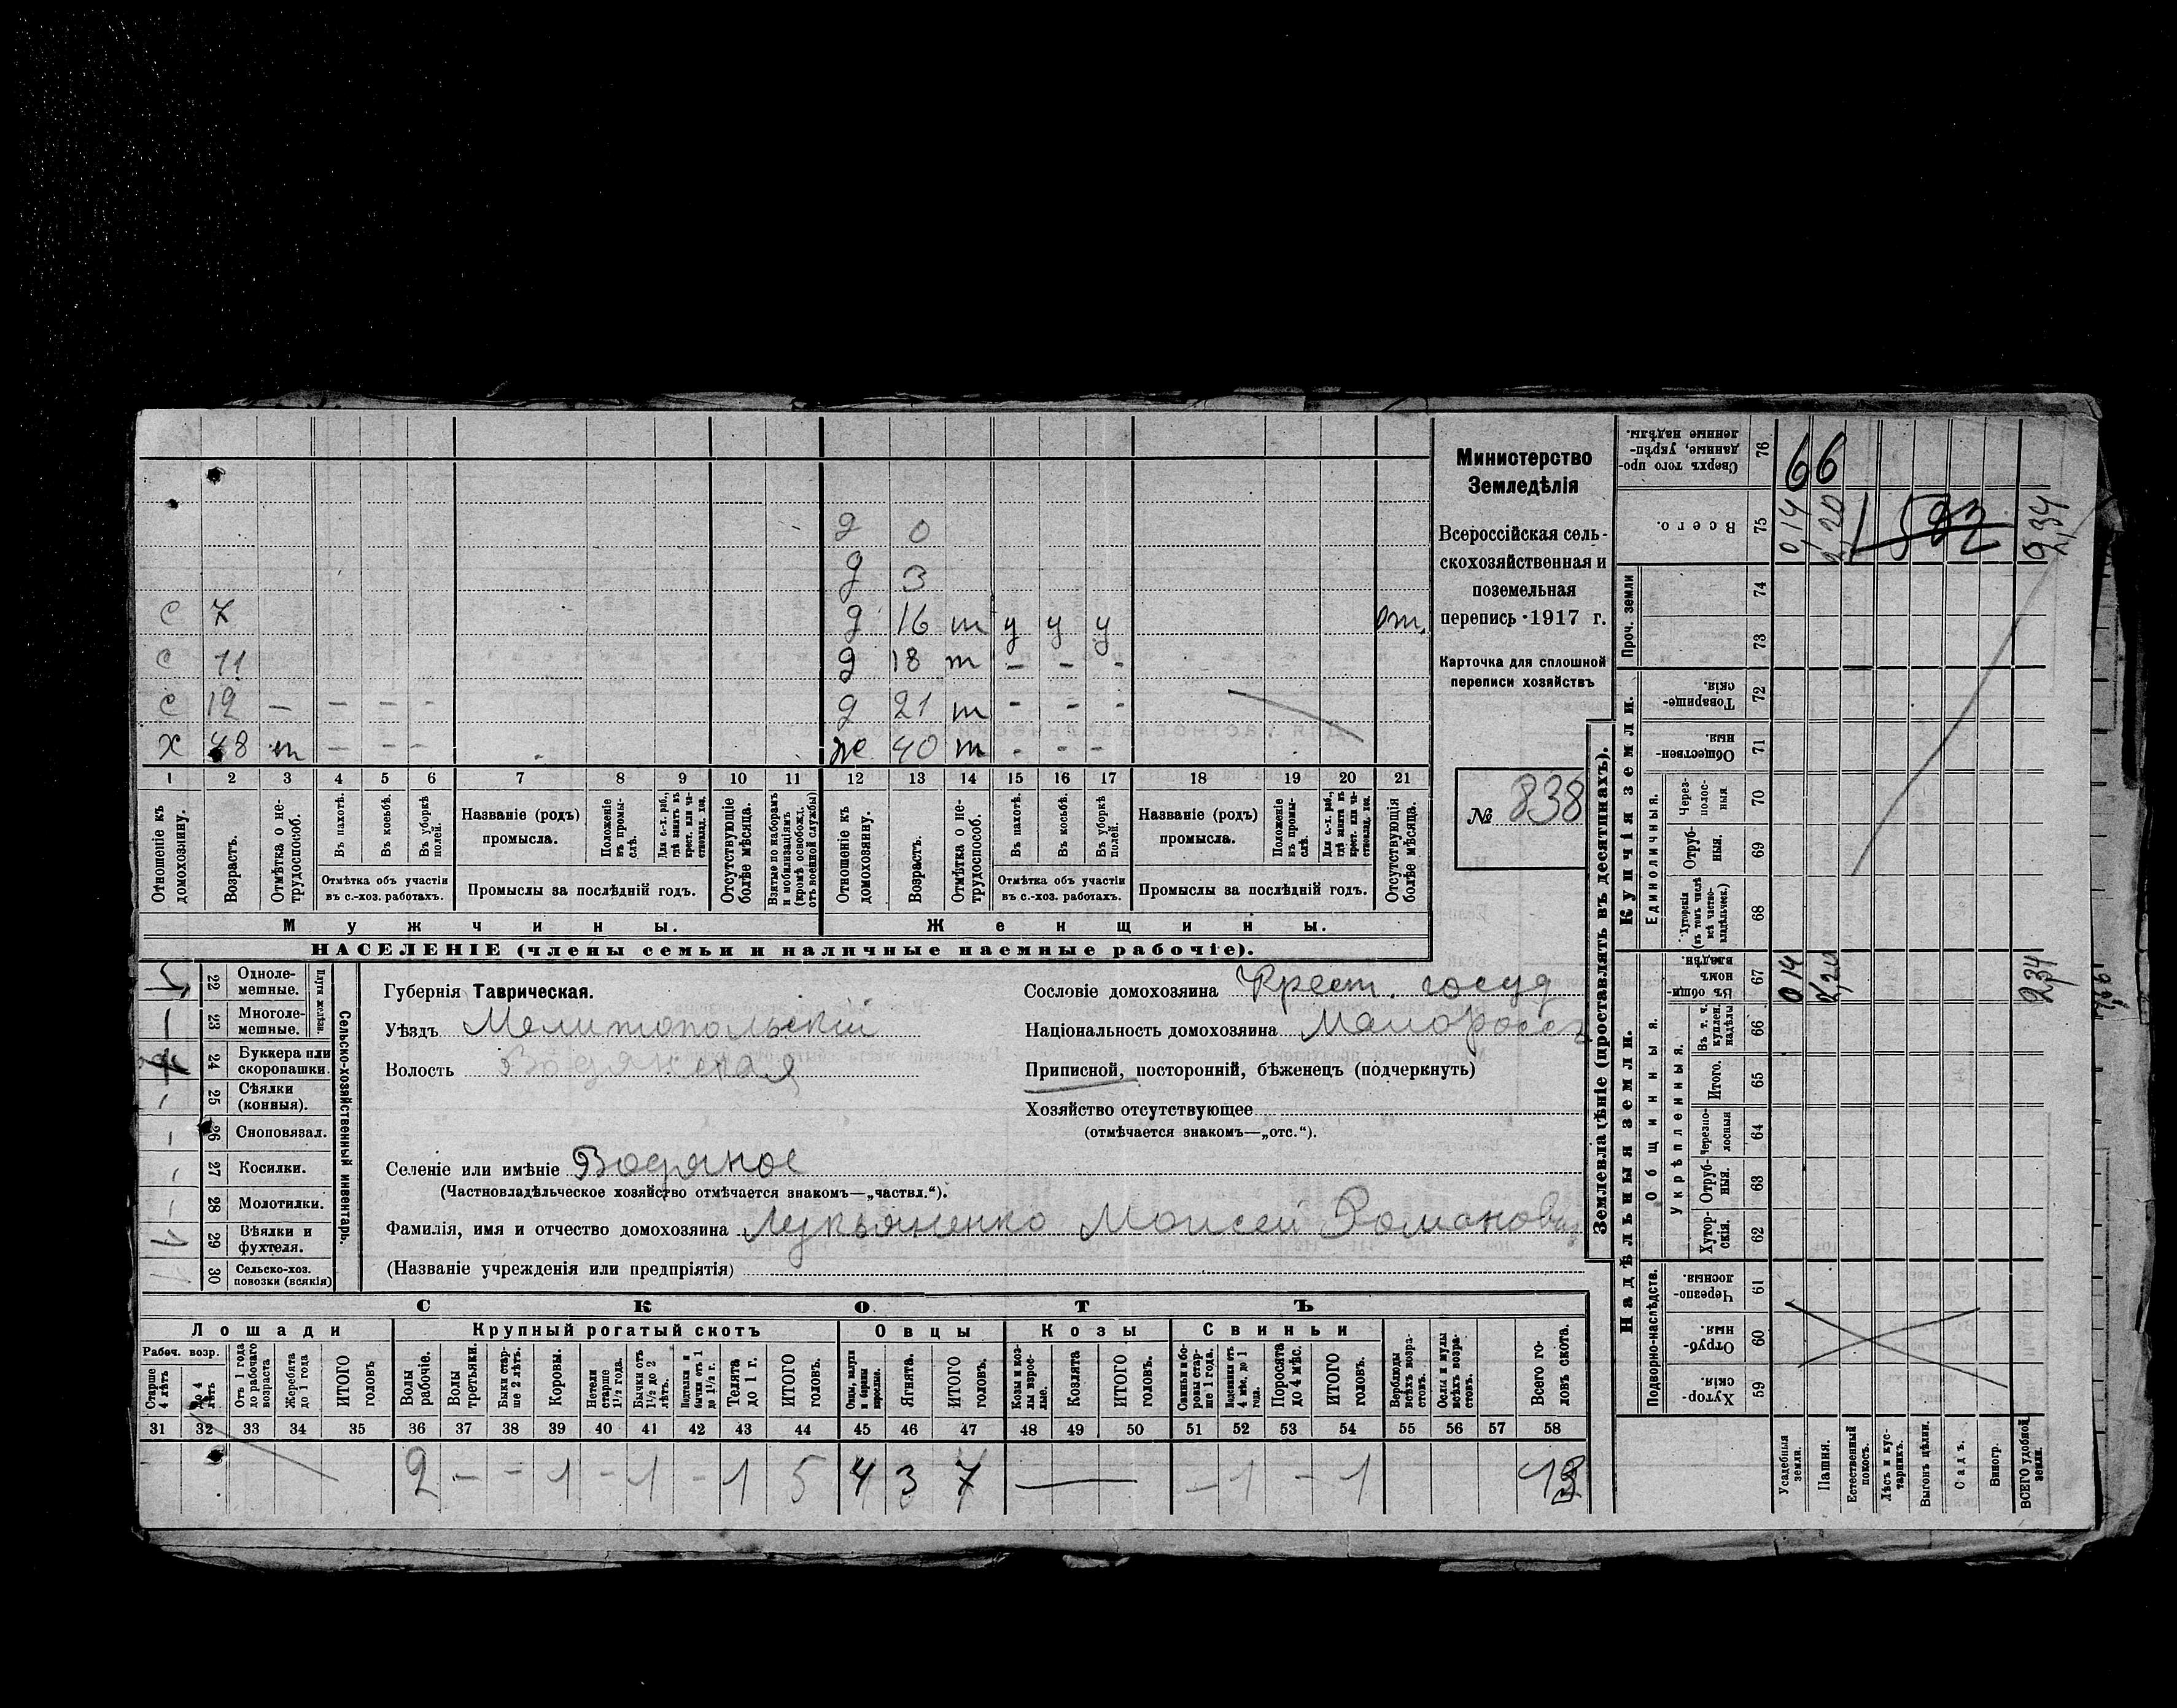 Министерство
Земледѣлія
Всероссійская сель-
скохозяйственная и
поземельная
перепись 1917 г.
Карточка для сплошной
переписи хозяйствъ
№ 838
д 0
д 3
с 7 д 16 т у у у от.
с 11 д 18 т - - -
с 12 - - - - д 21 т - - -
х 48 т - - - ж 40 т - - -
1 2 3 4 5 6 7 8 9 10 11 12 13 14 15 16 17 18 19 20 21
Отношеніе къ домохозяину.
Возрастъ.
Отмѣтка о не-трудоспособ.
Въ пахотѣ.
Въ косьбѣ.
Въ уборкѣ полей.
Отмѣтка объ участіи въ с.-хоз. работахъ.
Названіе (родъ) промысла.
Положеніе въ промы-слѣ.
Для с.-х. раб., гдѣ занятъ въ крест. или ча-стновлад. хоз.
Промыслы за послѣдній годъ.
Отсутствующіе болѣе мѣсяца.
Взятые по наборамъ и мобилизаціямъ (кромѣ освобожд. отъ военной службы)
Отношеніе къ домохозяину.
Возрастъ.
Отмѣтка о не-трудоспособ.
Въ пахотѣ.
Въ косьбѣ.
Въ уборкѣ полей.
Отмѣтка объ участіи въ с.-хоз. работахъ.
Названіе (родъ) промысла.
Положеніе въ промы-слѣ.
Для с.-х. раб., гдѣ занята въ крест. или ча-стновлад. хоз.
Промыслы за послѣдній годъ.
Отсутствующія болѣе мѣсяца.
Мужчины. Женщины.
НАСЕЛЕНІЕ (члены семьи и наличные наемные рабочіе).
22 Одноле-мешные.
23 Многоле-мешные.
Плуги желѣзн.
24 Буккера или скоропашки.
25 Сѣялки (конныя).
26 Сноповязал.
27 Косилки.
28 Молотилки.
29 Вѣялки и фухтеля.
30 Сельско-хоз. повозки (всякія)
Сельско-хозяйственный инвентарь.
Губернія Таврическая.
Уѣздъ Мелитопольскій
Волость Водянская
Сословіе домохозяина Крест. госуд
Національность домохозяина Малоросс
Приписной, посторонній, бѣженец (подчеркнуть)
Хозяйство отсутствующее
(отмѣчается знакомъ—„отс.“).
Селеніе или имѣніе Водяное
(Частновладѣльческое хозяйство отмѣчается знакомъ—„частвл.“).
Фамилія, имя и отчество домохозяина Лукьяненко Моисей Романович
(Названіе учрежденія или предпріятія)
СКОТЪ
Лошади Крупный рогатый скотъ Овцы Козы Свиньи
Рабоч. возр.
Старше 4 лѣтъ
до 4 лѣтъ
Отъ 1 года до рабочаго возраста
Жеребята до 1 года
ИТОГО головъ
Волы рабочіе.
Волы третьяки.
Быки стар-ше 2 лѣтъ.
Коровы.
Нетели старше 1½ года.
Бычки отъ 1½ до 2 лѣтъ.
бычки отъ 1 до 1½ г.
Телята до 1 г.
ИТОГО головъ.
Овцы, валухи и бараны взрослые.
Ягнята.
ИТОГО головъ.
Козы и коз-лы взрос-лые.
Козлята
ИТОГО головъ.
Свиньи и бо-ровы стар-ше 1 года.
Подсвинки отъ 4 мѣс. до 1 года.
Поросята до 4 мѣс.
ИТОГО головъ.
Верблюды всѣхъ возра-стовъ.
Ослы и мулы всѣхъ возра-стовъ.
Всего го-ловъ скота.
31 32 33 34 35 36 37 38 39 40 41 42 43 44 45 46 47 48 49 50 51 52 53 54 55 56 57 58
2 - - 1 - 1 - 1 5 4 3 7 — - 1 - 1 13
Землевладѣніе (проставлять въ десятинахъ).
Надѣльныя земли. Купчія земли.
Подворно-наслѣдств.
Общинныя.
Укрѣпленныя.
Единоличныя.
Проч. земли
Хутор-скія. 59
Отруб-ныя 60
Черезпо-лосныя. 61
Хутор-скія. 62
Отруб-ныя. 63
Черезпо-лосныя 64
Итого. 65
Въ т. ч. куплен. надѣлы 66
Въ общин-номъ владѣн. 67
Хуторскія (въ томъ числѣ всѣ частно-владѣльческ.) 68
Отруб-ныя. 69
Через-полос-ныя 70
Обществен-ныя 71
Товарище-скія. 72
73
74
Всего. 75
Сверхъ того про-данные, укрѣп-ленные надѣлы. 76
Усадебныя земли.
Пашня.
Естественный покосъ.
Лѣсъ и кус-тарникъ.
Выгонъ цѣлин.
Садъ.
Виногр.
ВСЕГО удобной земли.
0,14
2,20
2,34
0,14
2,20
2,34
66
1592